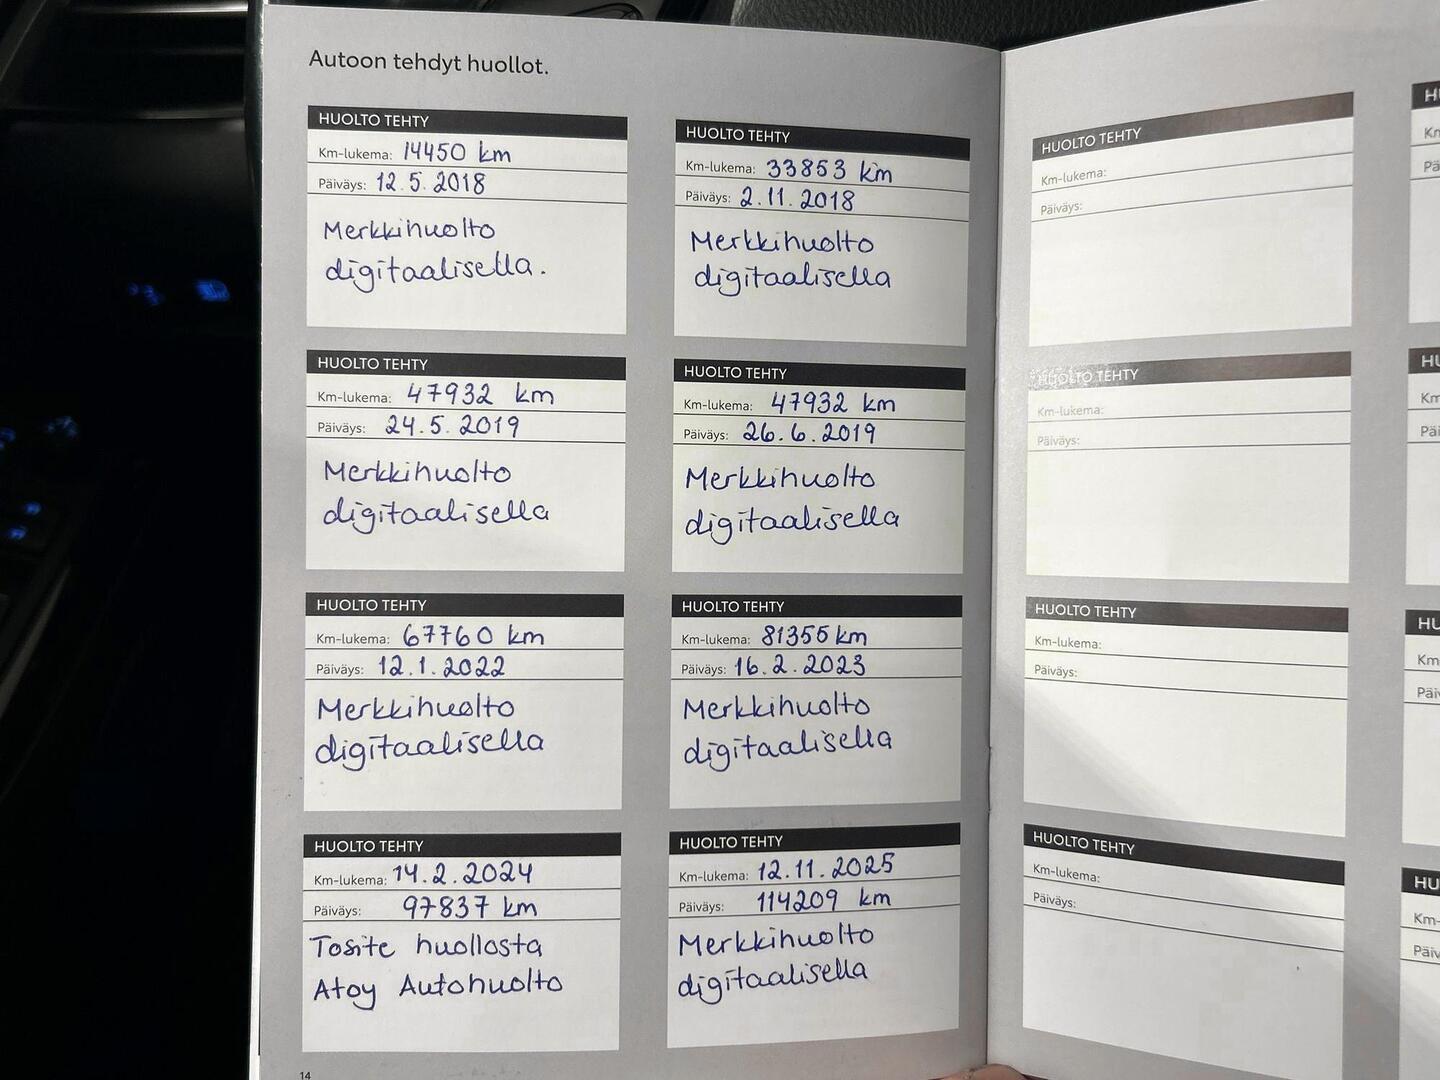 Autoon tehdyt huollot.
HUOLTO TEHTY
Km-lukema: 14450 km
Päiväys: 12.5.2018
Merkkihuolto
digitaalisella.
HUOLTO TEHTY
Km-lukema: 33853 km
Päiväys: 2.11.2018
Merkkihuolto
digitaalisella
HUOLTO TEHTY
Km-lukema: 47932 km
Päiväys: 24.5.2019
Merkkihuolto
digitaalisella
HUOLTO TEHTY
Km-lukema: 47932 km
Päiväys: 26.6.2019
Merkkihuolto
digitaalisella
HUOLTO TEHTY
Km-lukema: 67760 km
Päiväys: 12.1.2022
Merkkihuolto
digitaalisella
HUOLTO TEHTY
Km-lukema: 81355 km
Päiväys: 16.2.2023
Merkkihuolto
digitaalisella
HUOLTO TEHTY
Km-lukema: 14.2.2024
Päiväys: 97837 km
Tosite huollosta
Atoy Autohuolto
HUOLTO TEHTY
Km-lukema: 12.11.2025
Päiväys: 114209 km
Merkkihuolto
digitaalisella
14
HUOLTO TEHTY
Km-lukema:
Päiväys:
HUOLTO TEHTY
Km-lukema:
Päiväys:
HUOLTO TEHTY
Km-lukema:
Päiväys:
HUOLTO TEHTY
Km-lukema:
Päiväys: